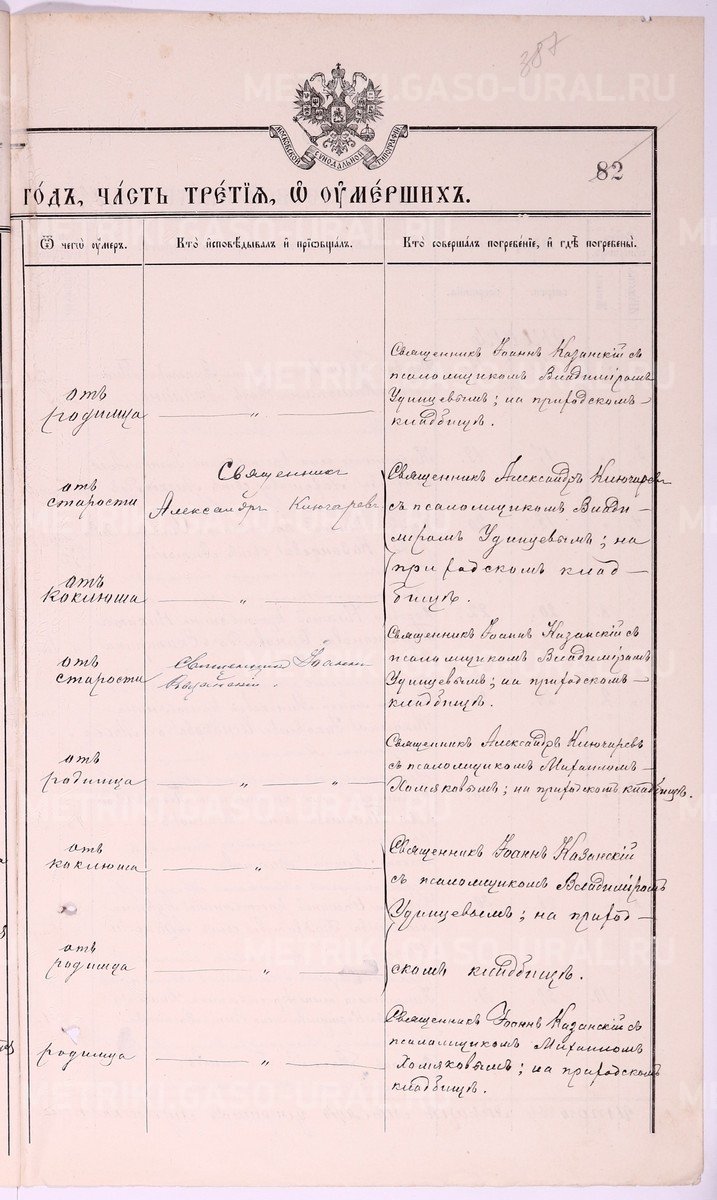 387
METRIKI.GASO-URAL.RU
МОСКОВСКОЙ СѴНОДАЛЬНОЙ ТИПОГРАФІИ
82
го́дъ, ча́сть тре́тїѧ, ѡ҆ ᲂу҆ме́ршихъ.
Ѿ чегѡ̀ ᲂу҆́меръ.
Кто̀ и҆сповѣ́дывалъ и҆ прїѡбща́лъ.
Кто̀ соверша́лъ погребе́нїе, и҆ гдѣ̀ погребены̀.
отъ
родимца
"
Священникъ Іоаннъ Казанскій съ
псаломщикомъ Владиміромъ
Удинцевымъ; на приходскомъ
кладбищѣ.
отъ
старости
Священникъ
Александръ Ключаревъ
Священникъ Александръ Ключаревъ
съ псаломщикомъ Влади-
міромъ Удинцевымъ; на
приходскомъ клад-
бищѣ.
отъ
коклюша
"
отъ
старости
Священникъ Іоаннъ
Казанскій.
Священникъ Іоаннъ Казанскій съ
псаломщикомъ Владиміромъ
Удинцевымъ; на приходскомъ
кладбищѣ.
отъ
родимца
" "
Священникъ Александръ Ключаревъ
съ псаломщикомъ Михаиломъ
Хомяковымъ; на приходскомъ кладбищѣ.
отъ
коклюша
"
Священникъ Іоаннъ Казанскій
съ псаломщикомъ Владиміромъ
Удинцевымъ; на приход-
скомъ кладбищѣ.
отъ
родимца
"
родимца
"
Священникъ Іоаннъ Казанскій съ
псаломщикомъ Михаиломъ
Хомяковымъ; на приходскомъ
кладбищѣ.